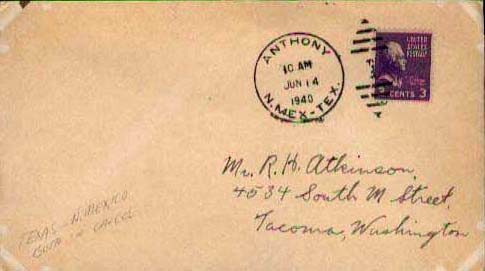 ANTHONY
10 AM
JUN 14
1940
N.MEX-TEX.
UNITED
STATES
POSTAGE
CENTS 3
Mr. R. H. Atkinson,
4534 South M Street,
Tacoma, Washington
TEXAS - N. MEXICO
GOOD